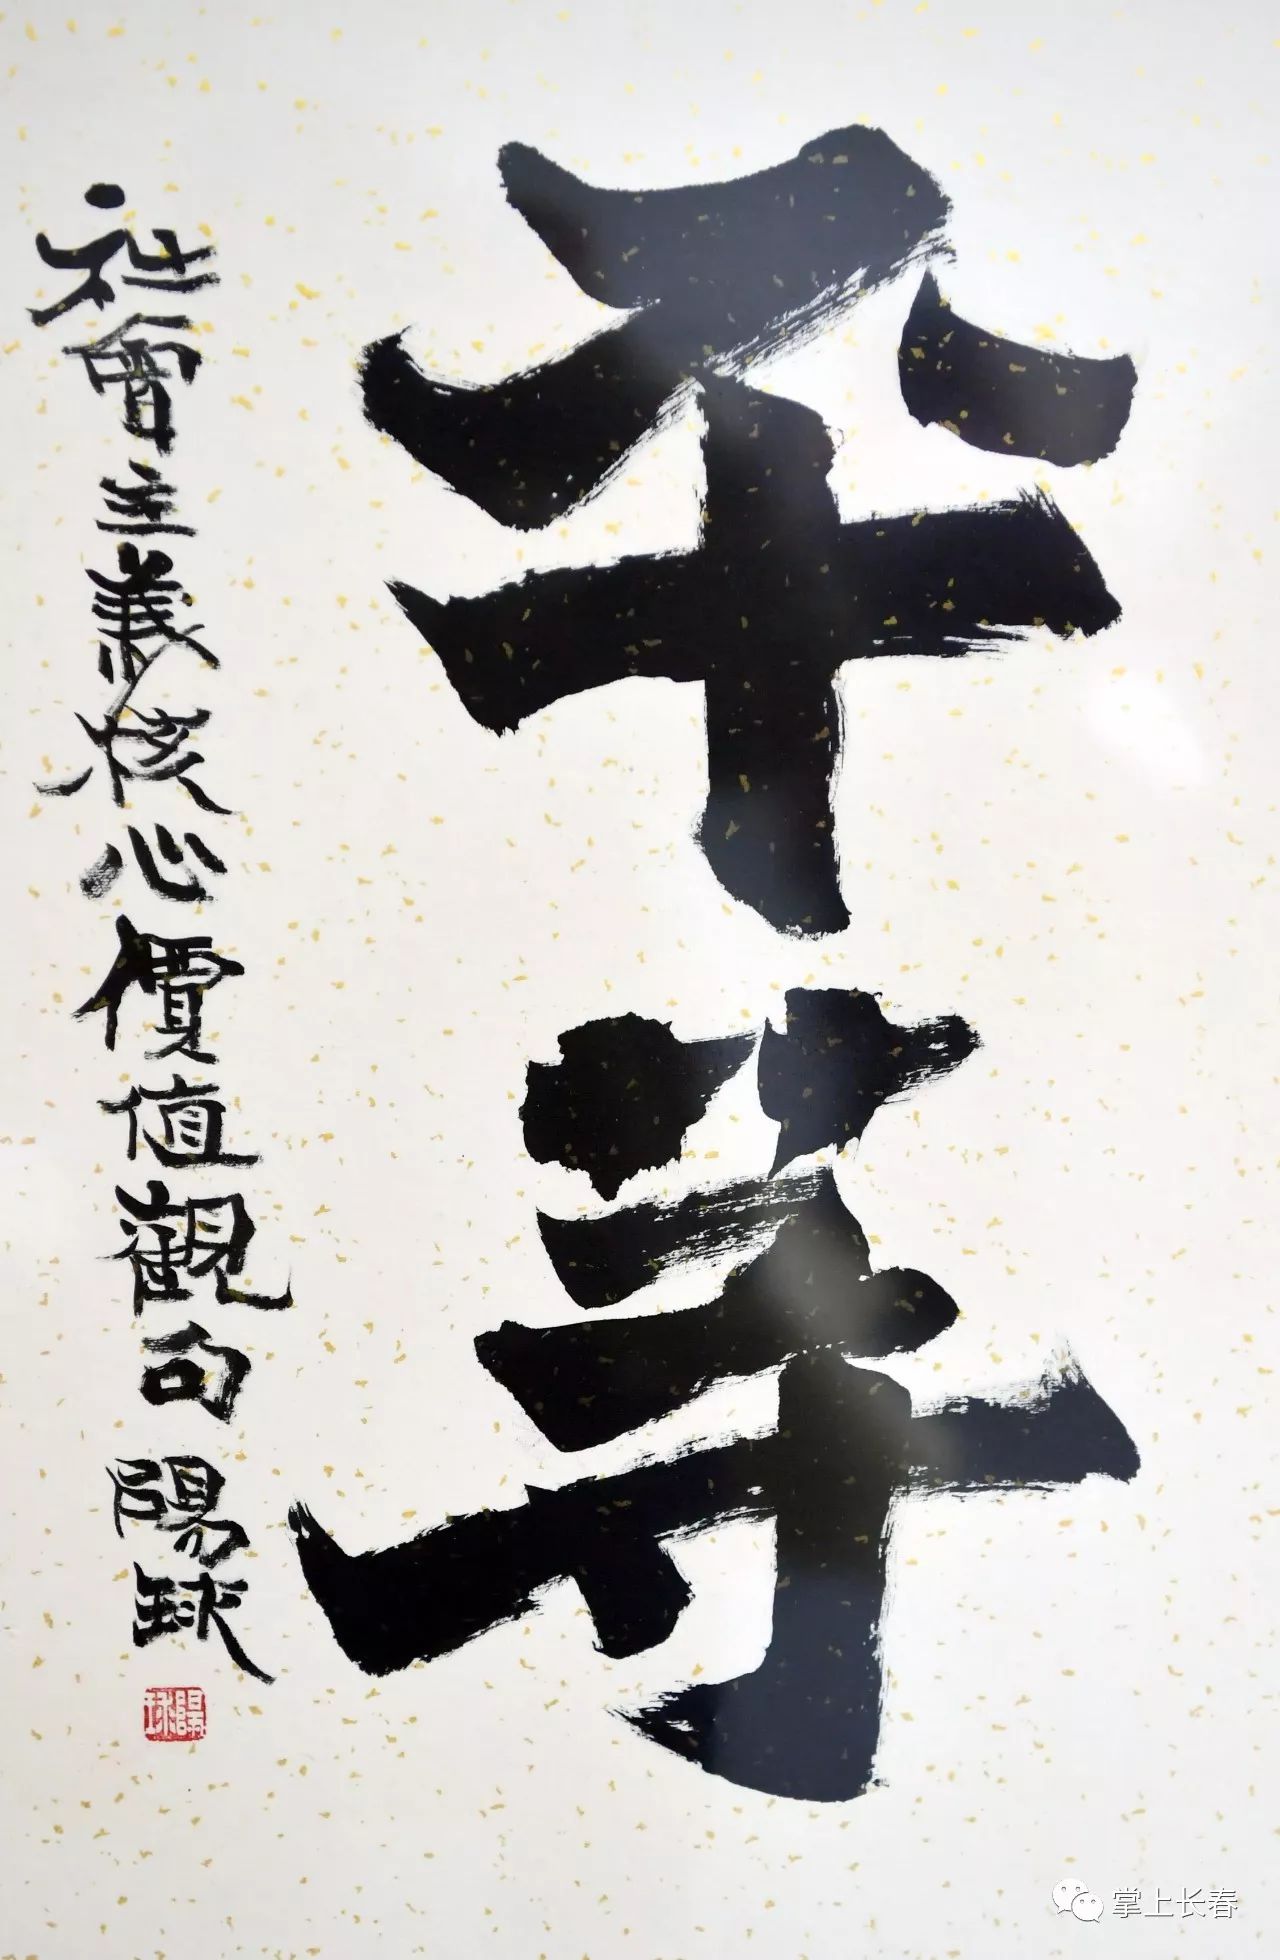 平等
社會主義核心價值觀句 陽球
陽球
掌上长春